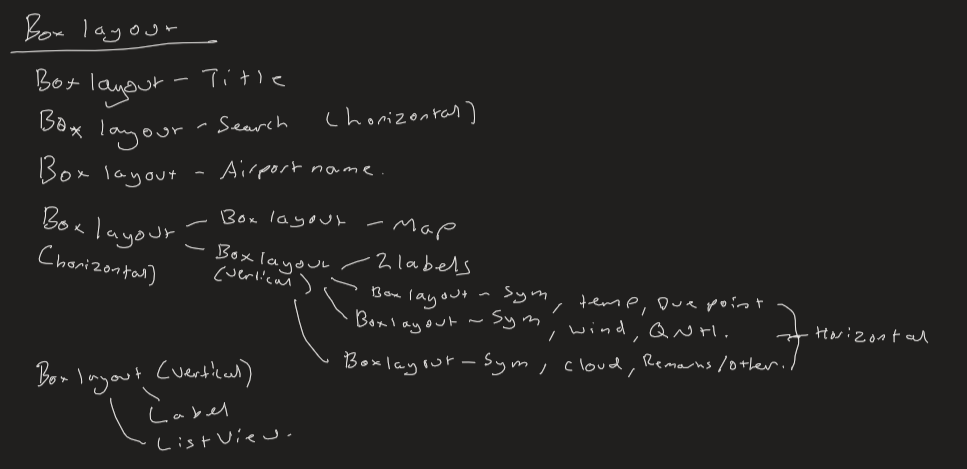 Box layout
Box layout - Title
Box layout - Search (horizontal)
Box layout - Airport name.
Box layout - Box layout - Map
(horizontal)
Box layout - 2 labels
(vertical)
Box layout - Sym, temp, Due point
Box layout - Sym, wind, QNH.
Box layout - Sym, cloud, Remarks/other.
Horizontal
Box layout (vertical)
Label
ListView.